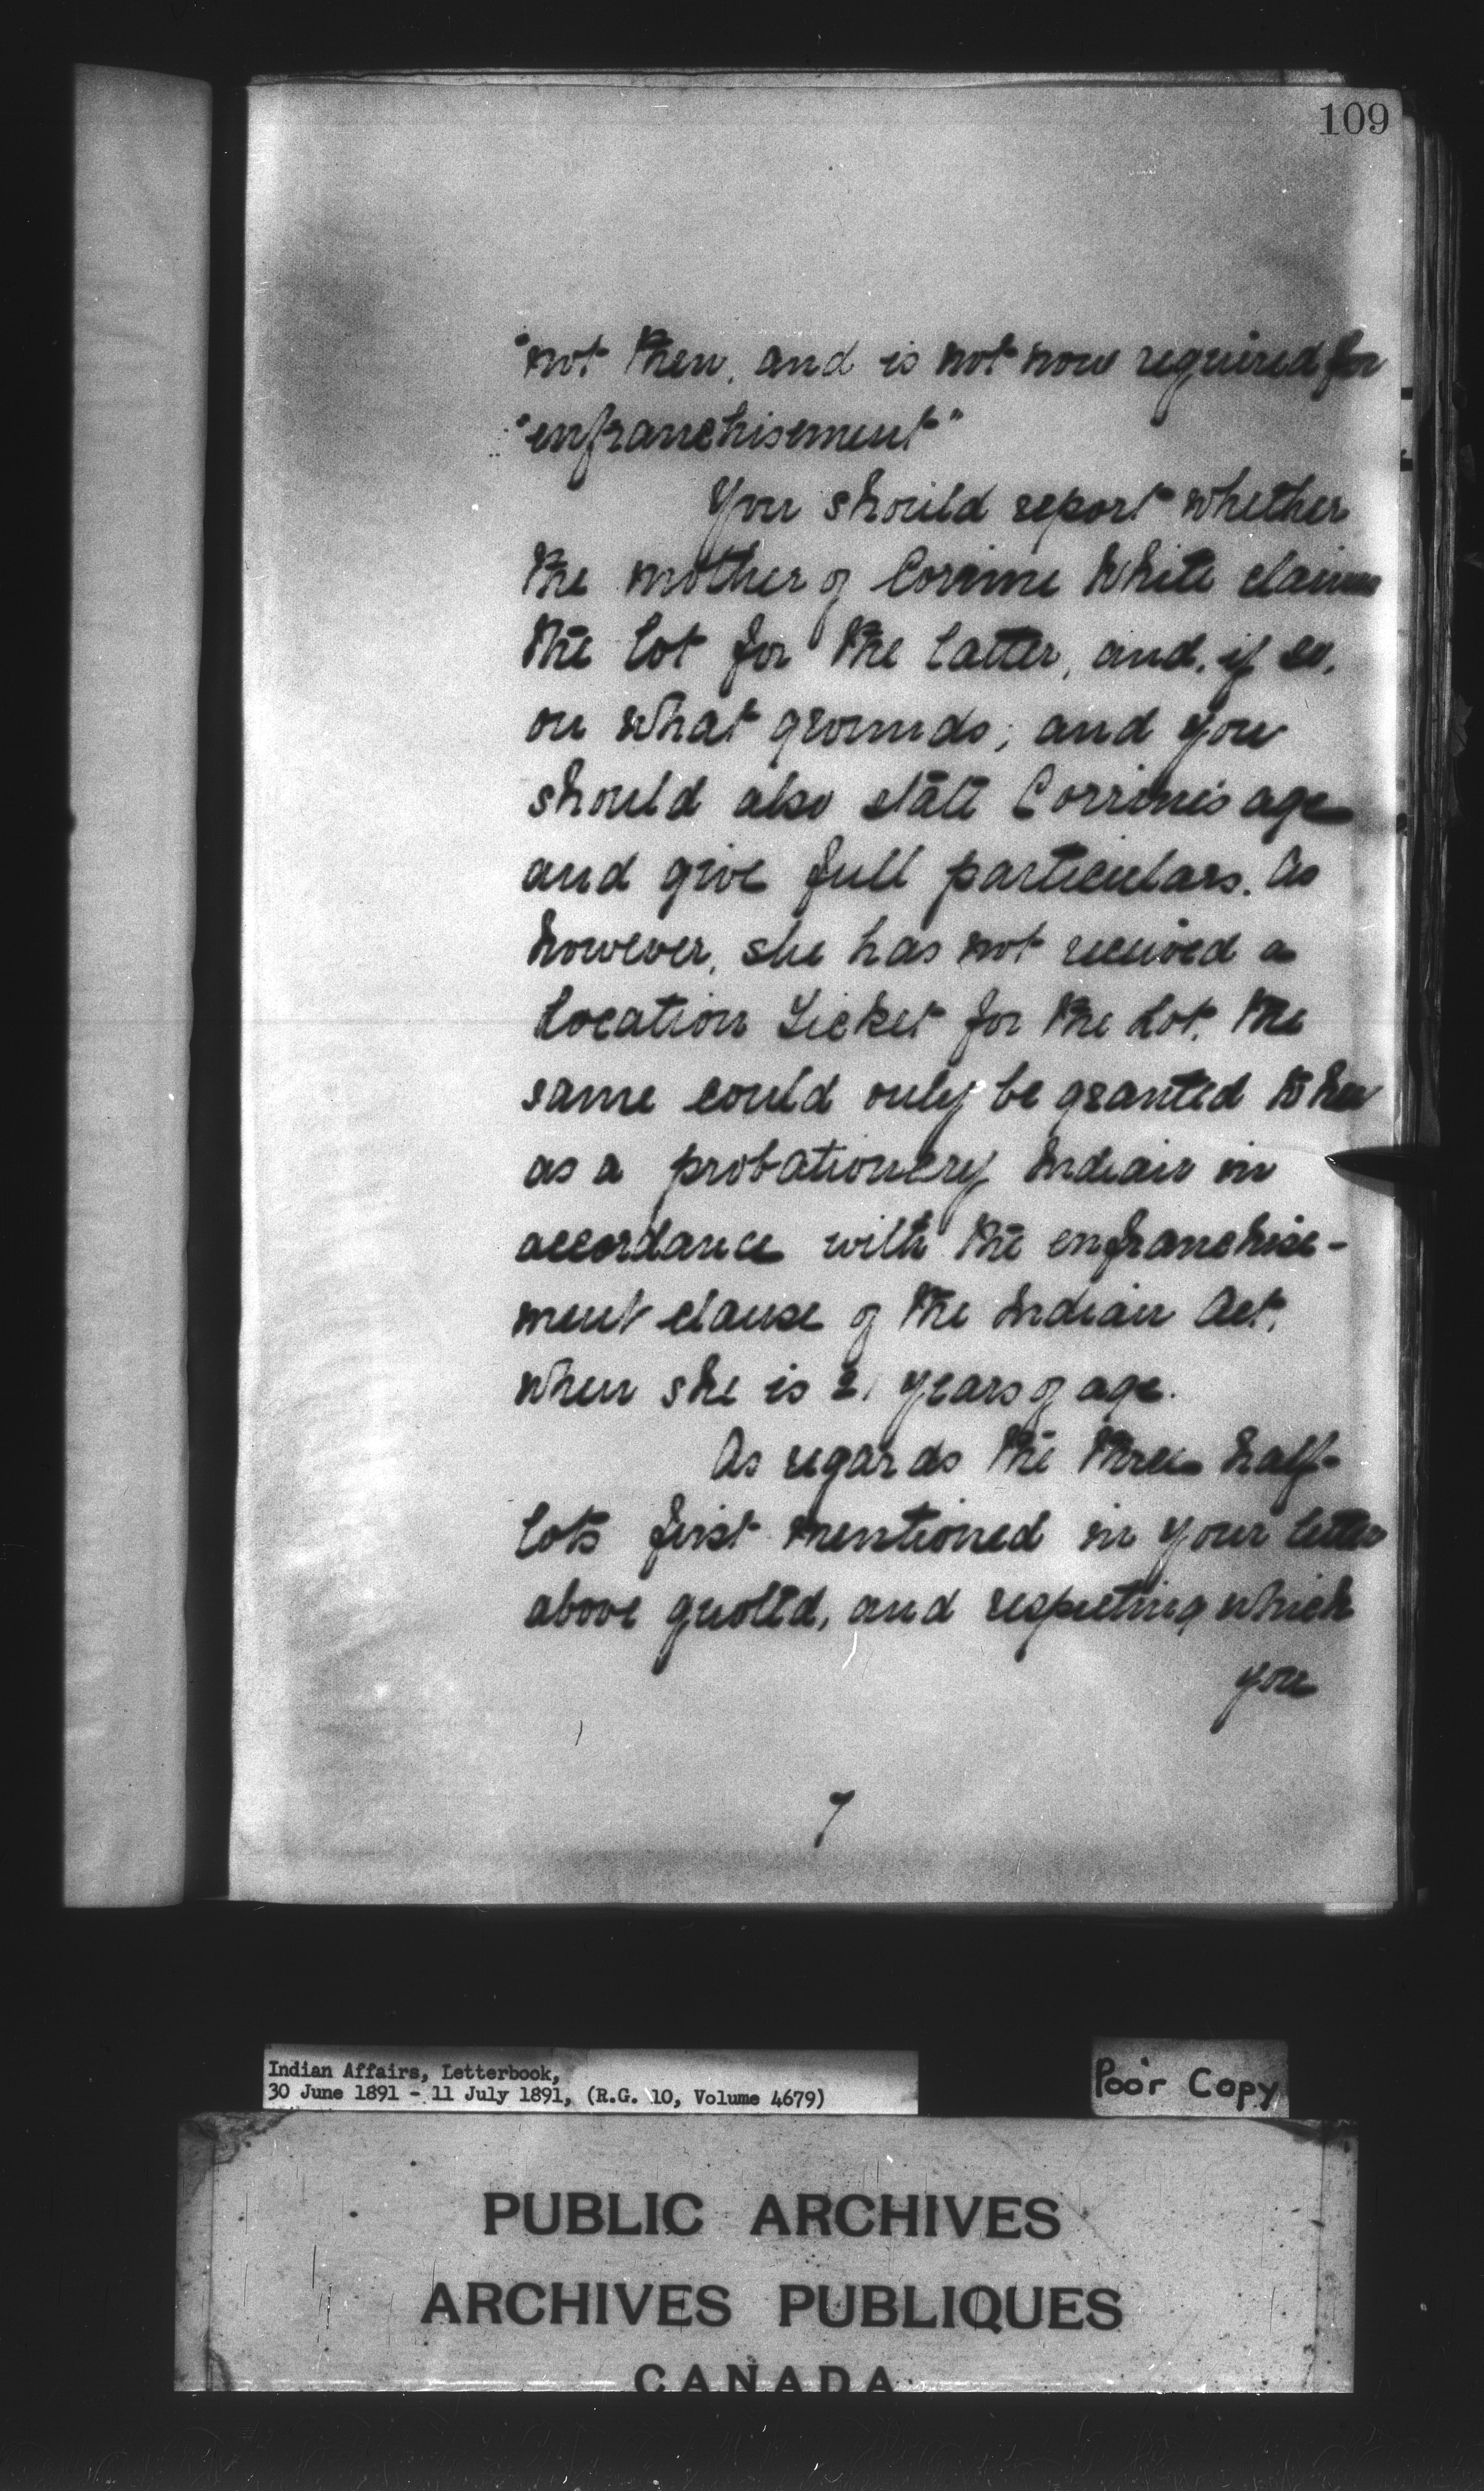 109
"not then, and is not now required for
"enfranchisement"
You should report whether
the mother of Corrine White claims
the lot for the latter, and, if so,
on what grounds; and you
should also state Corrine's age
and give full particulars. As
however, she has not received a
Location Ticket for the lot, the
same could only be granted to her
as a probationery Indian in
accordance with the enfranchise-
ment clause of the Indian Act,
when she is 21 years of age.
As regards the three half-
lots first mentioned in your letter
above quoted, and respecting which
you
7
Indian Affairs, Letterbook,
30 June 1891 - 11 July 1891, (R.G. 10, Volume 4679)
Poor Copy
PUBLIC ARCHIVES
ARCHIVES PUBLIQUES
CANADA